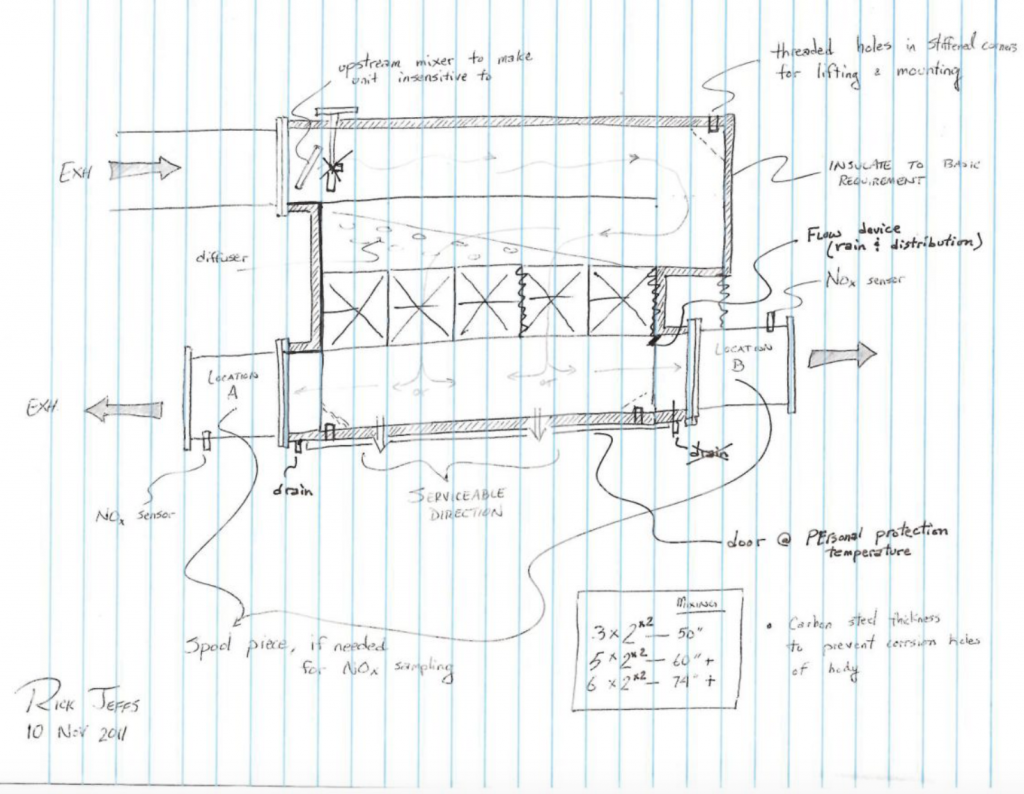 upstream mixer to make
unit insensitive to
threaded holes in stiffened corners
for lifting & mounting
EXH
INSULATE TO BASIC
REQUIREMENT
Flow device
(rain & distribution)
diffuser
NOx sensor
LOCATION
A
LOCATION
B
or
or
EXH.
drain
drain
NOx sensor
SERVICEABLE
DIRECTION
door @ PErsonal protection
temperature
MIXING
3 x 2 x2 — 50"
5 x 2 x2 — 60" +
6 x 2 x2 — 74" +
• Carbon steel thickness
to prevent corrsion holes
of body
Spool piece, if needed
for NOx sampling
RICK JEFFS
10 NOV 2011